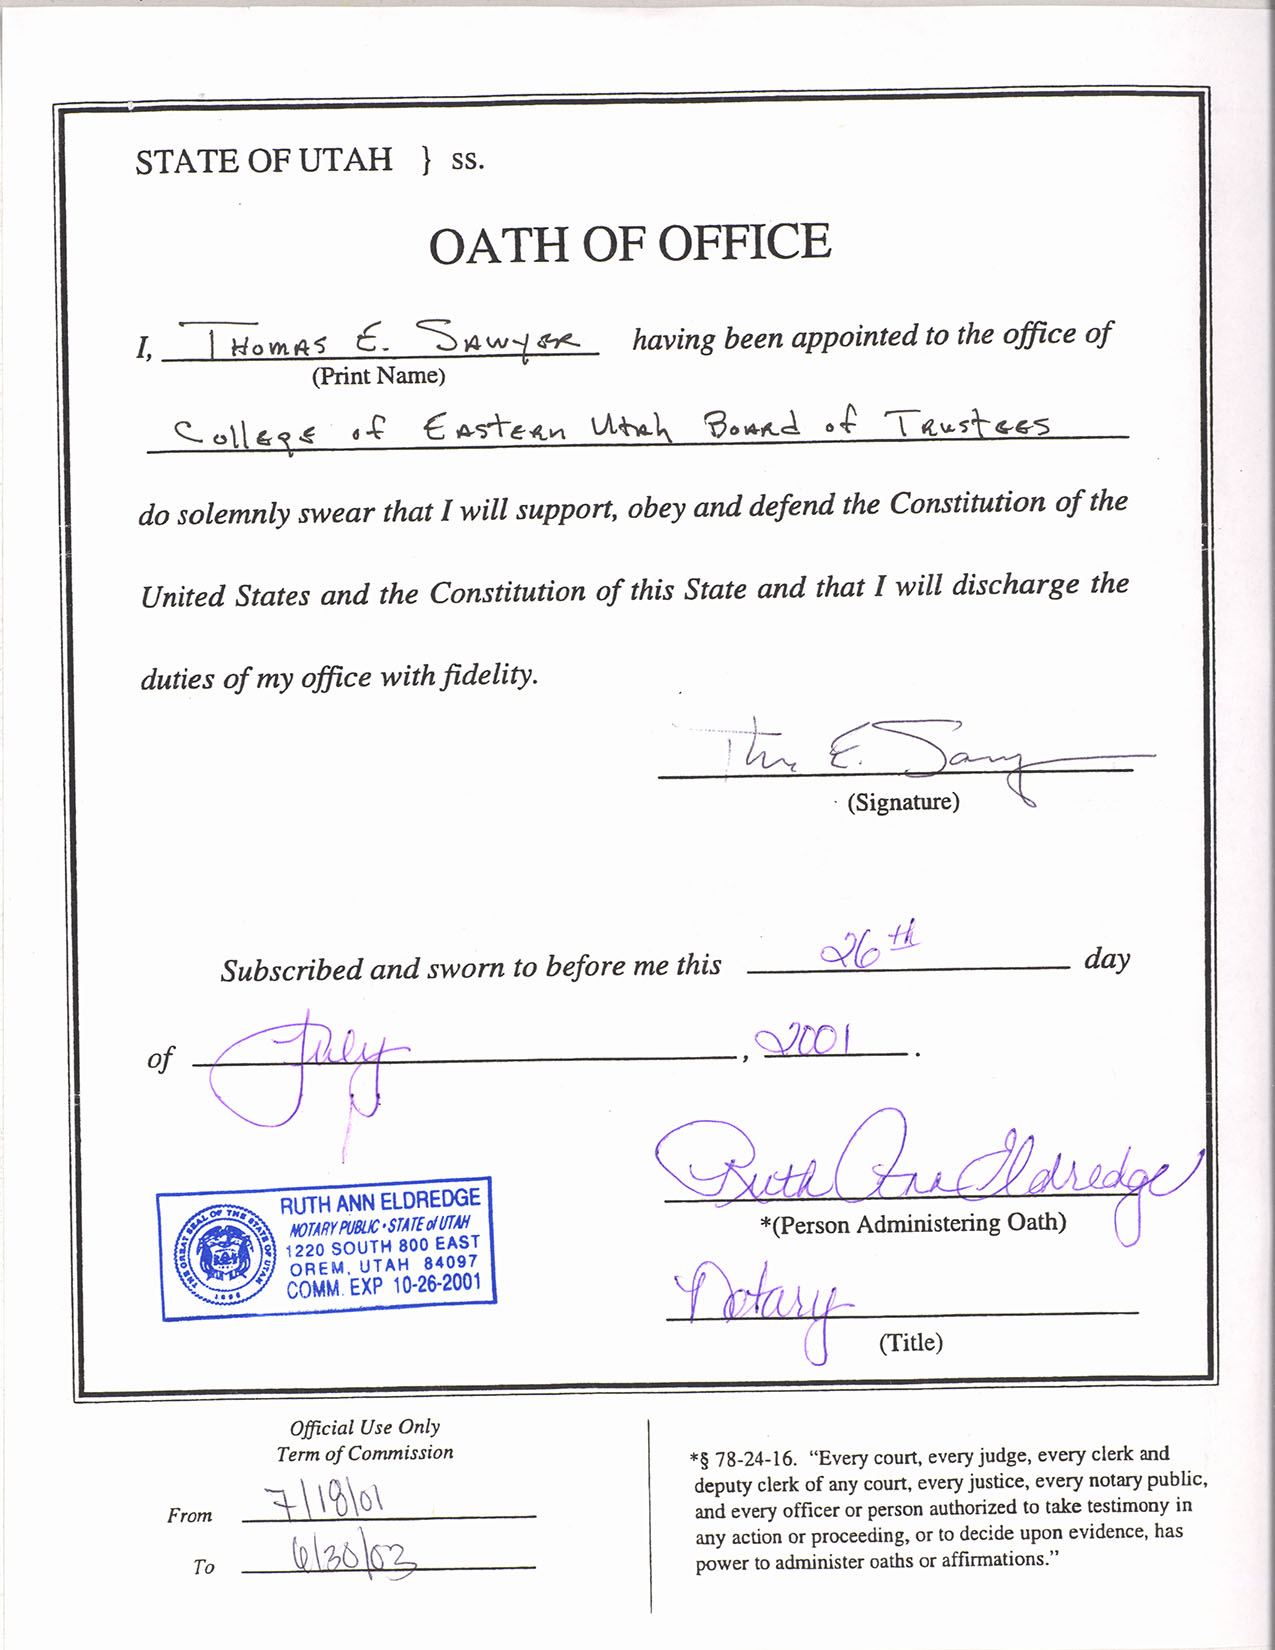 STATE OF UTAH } ss.
OATH OF OFFICE
I, Thomas E. Sawyer having been appointed to the office of
(Print Name)
College of Eastern Utah Board of Trustees
do solemnly swear that I will support, obey and defend the Constitution of the
United States and the Constitution of this State and that I will discharge the
duties of my office with fidelity.
Thos E. Sawyer
(Signature)
Subscribed and sworn to before me this 26th day
of July, 2001.
Ruth Ann Eldredge
*(Person Administering Oath)
Notary
(Title)
THE GREAT SEAL OF THE STATE OF UTAH
1896
RUTH ANN ELDREDGE
NOTARY PUBLIC • STATE of UTAH
1220 SOUTH 800 EAST
OREM, UTAH 84097
COMM. EXP 10-26-2001
Official Use Only
Term of Commission
From 7/18/01
To 6/30/03
*§ 78-24-16. “Every court, every judge, every clerk and
deputy clerk of any court, every justice, every notary public,
and every officer or person authorized to take testimony in
any action or proceeding, or to decide upon evidence, has
power to administer oaths or affirmations.”